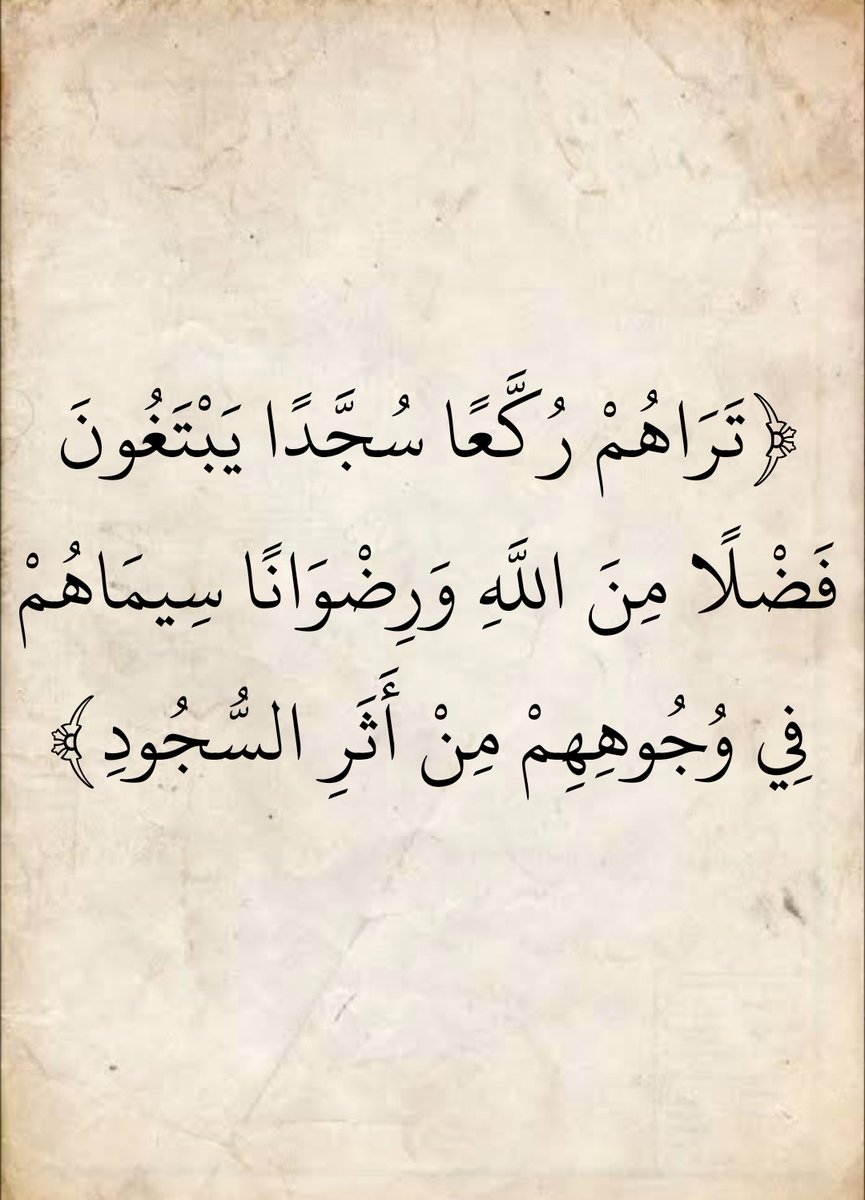 ﴿تَرَاهُمْ رُكَّعًا سُجَّدًا يَبْتَغُونَ
فَضْلًا مِنَ اللَّهِ وَرِضْوَانًا سِيمَاهُمْ
فِي وُجُوهِهِمْ مِنْ أَثَرِ السُّجُودِ﴾